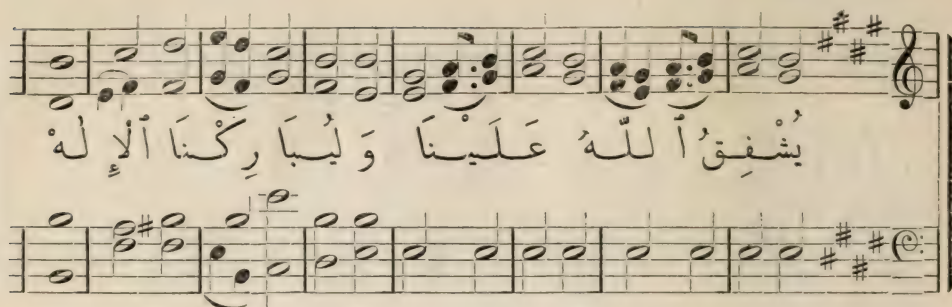 يُشْفِقُ ٱللّٰهُ عَلَيْنَا وَلْيُبَارِكْنَا ٱلْإِلٰهْ